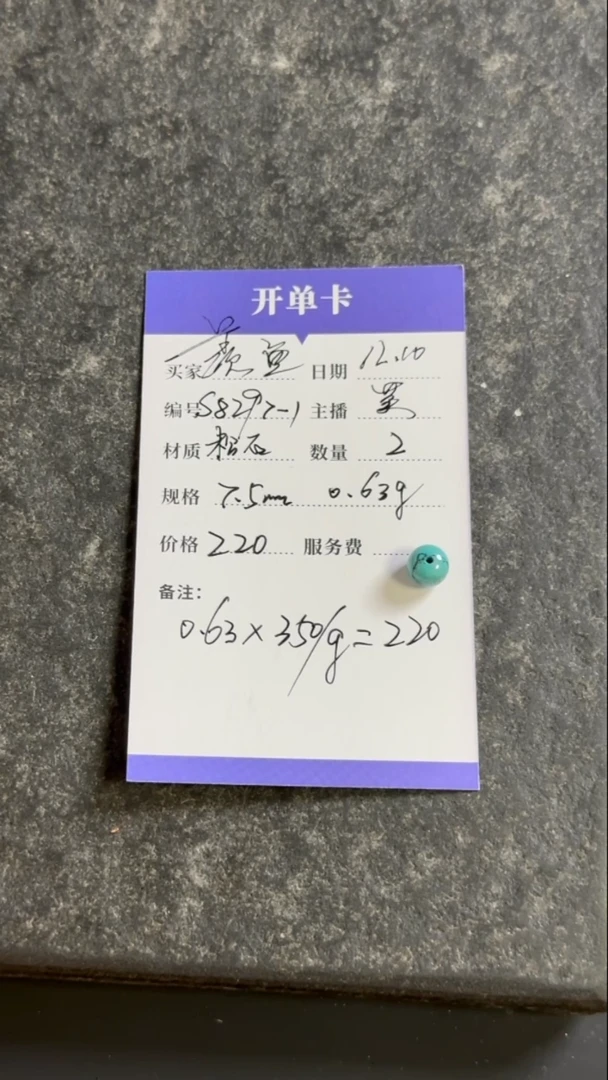 开单卡
买家 日期 12.10
编号 S8297-1 主播
材质 松石 数量 2
规格 7.5mm 0.63g
价格 220 服务费
备注：
0.63×350/g=220